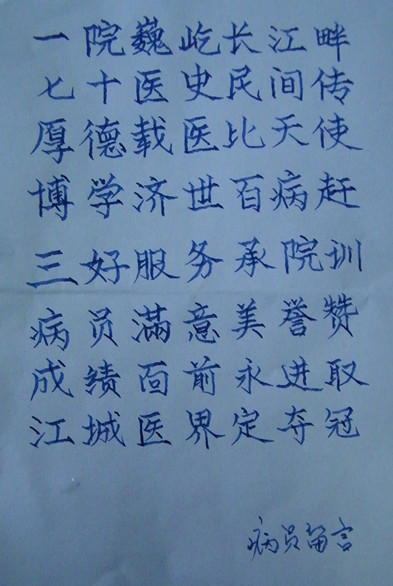 一院巍屹长江畔
七十医史民间传
厚德载医比天使
博学济世百病赶
三好服务承院训
病员满意美誉赞
成绩面前永进取
江城医界定夺冠
病员留言